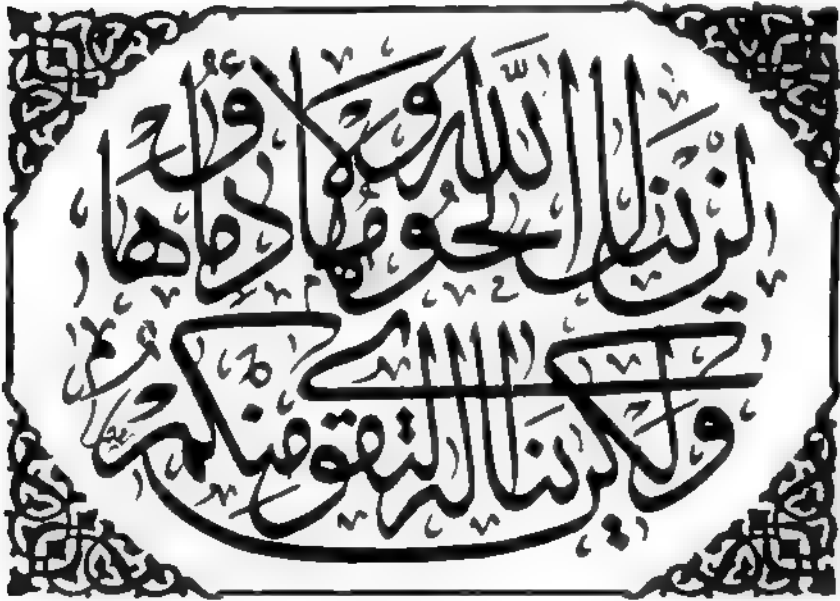 لَنْ يَنَالَ اللَّهَ لُحُومُهَا وَلَا دِمَاؤُهَا
وَلَكِنْ يَنَالُهُ التَّقْوَى مِنْكُمْ